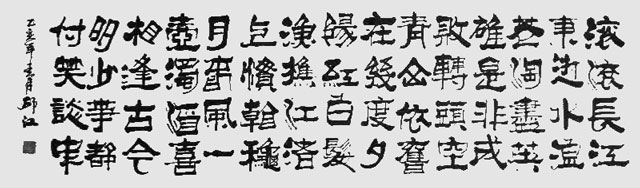 滚滚長江
東逝水浪
花淘盡英
雄是非成
敗轉頭空
青山依舊
在幾度夕
陽紅白髮
漁樵江渚
上慣看穐
月春風一
壺濁酒喜
相逢古今
多少事都
付笑談中
乙亥年春月